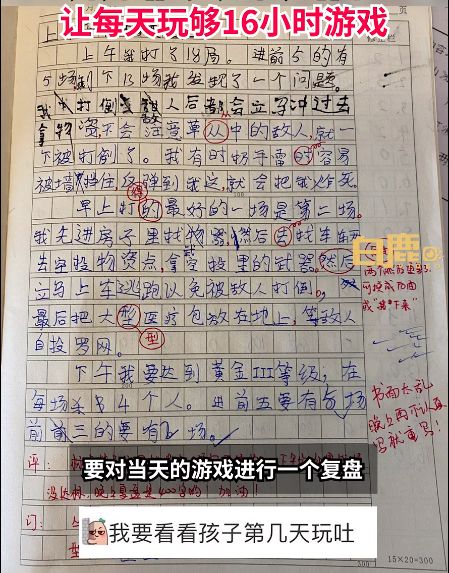 让每天玩够16小时游戏
上午我打了18局。进前5的有
5场剩下13场我发现了一个问题。
打倒敌人后都会立马冲过去
拿物资,不会注意草从中的敌人,就一
下被打倒了。我有时扔手雷时容易
被墙挡住,反弹到我这,就会把我炸死。
得
早上打的最好的一场是第二场。
我先进房子里找物器,然后去找车辆
白鹿
去空投物资点,拿空投里的武器,然后
立马上车逃跑以免被敌人打倒,
最后把大型医疗包放在地上,等敌人
自投罗网。
型
下午我要达到黄金III等级,在
每场杀4个人。进前五要有5场
前三的要有2场。
书面太乱
晚上再不认真
写就重写!
评:
要对当天的游戏进行一个复盘
没达标,晚上复盘是400字的 加油!
我要看看孩子第几天玩吐
型
300
15×20=300